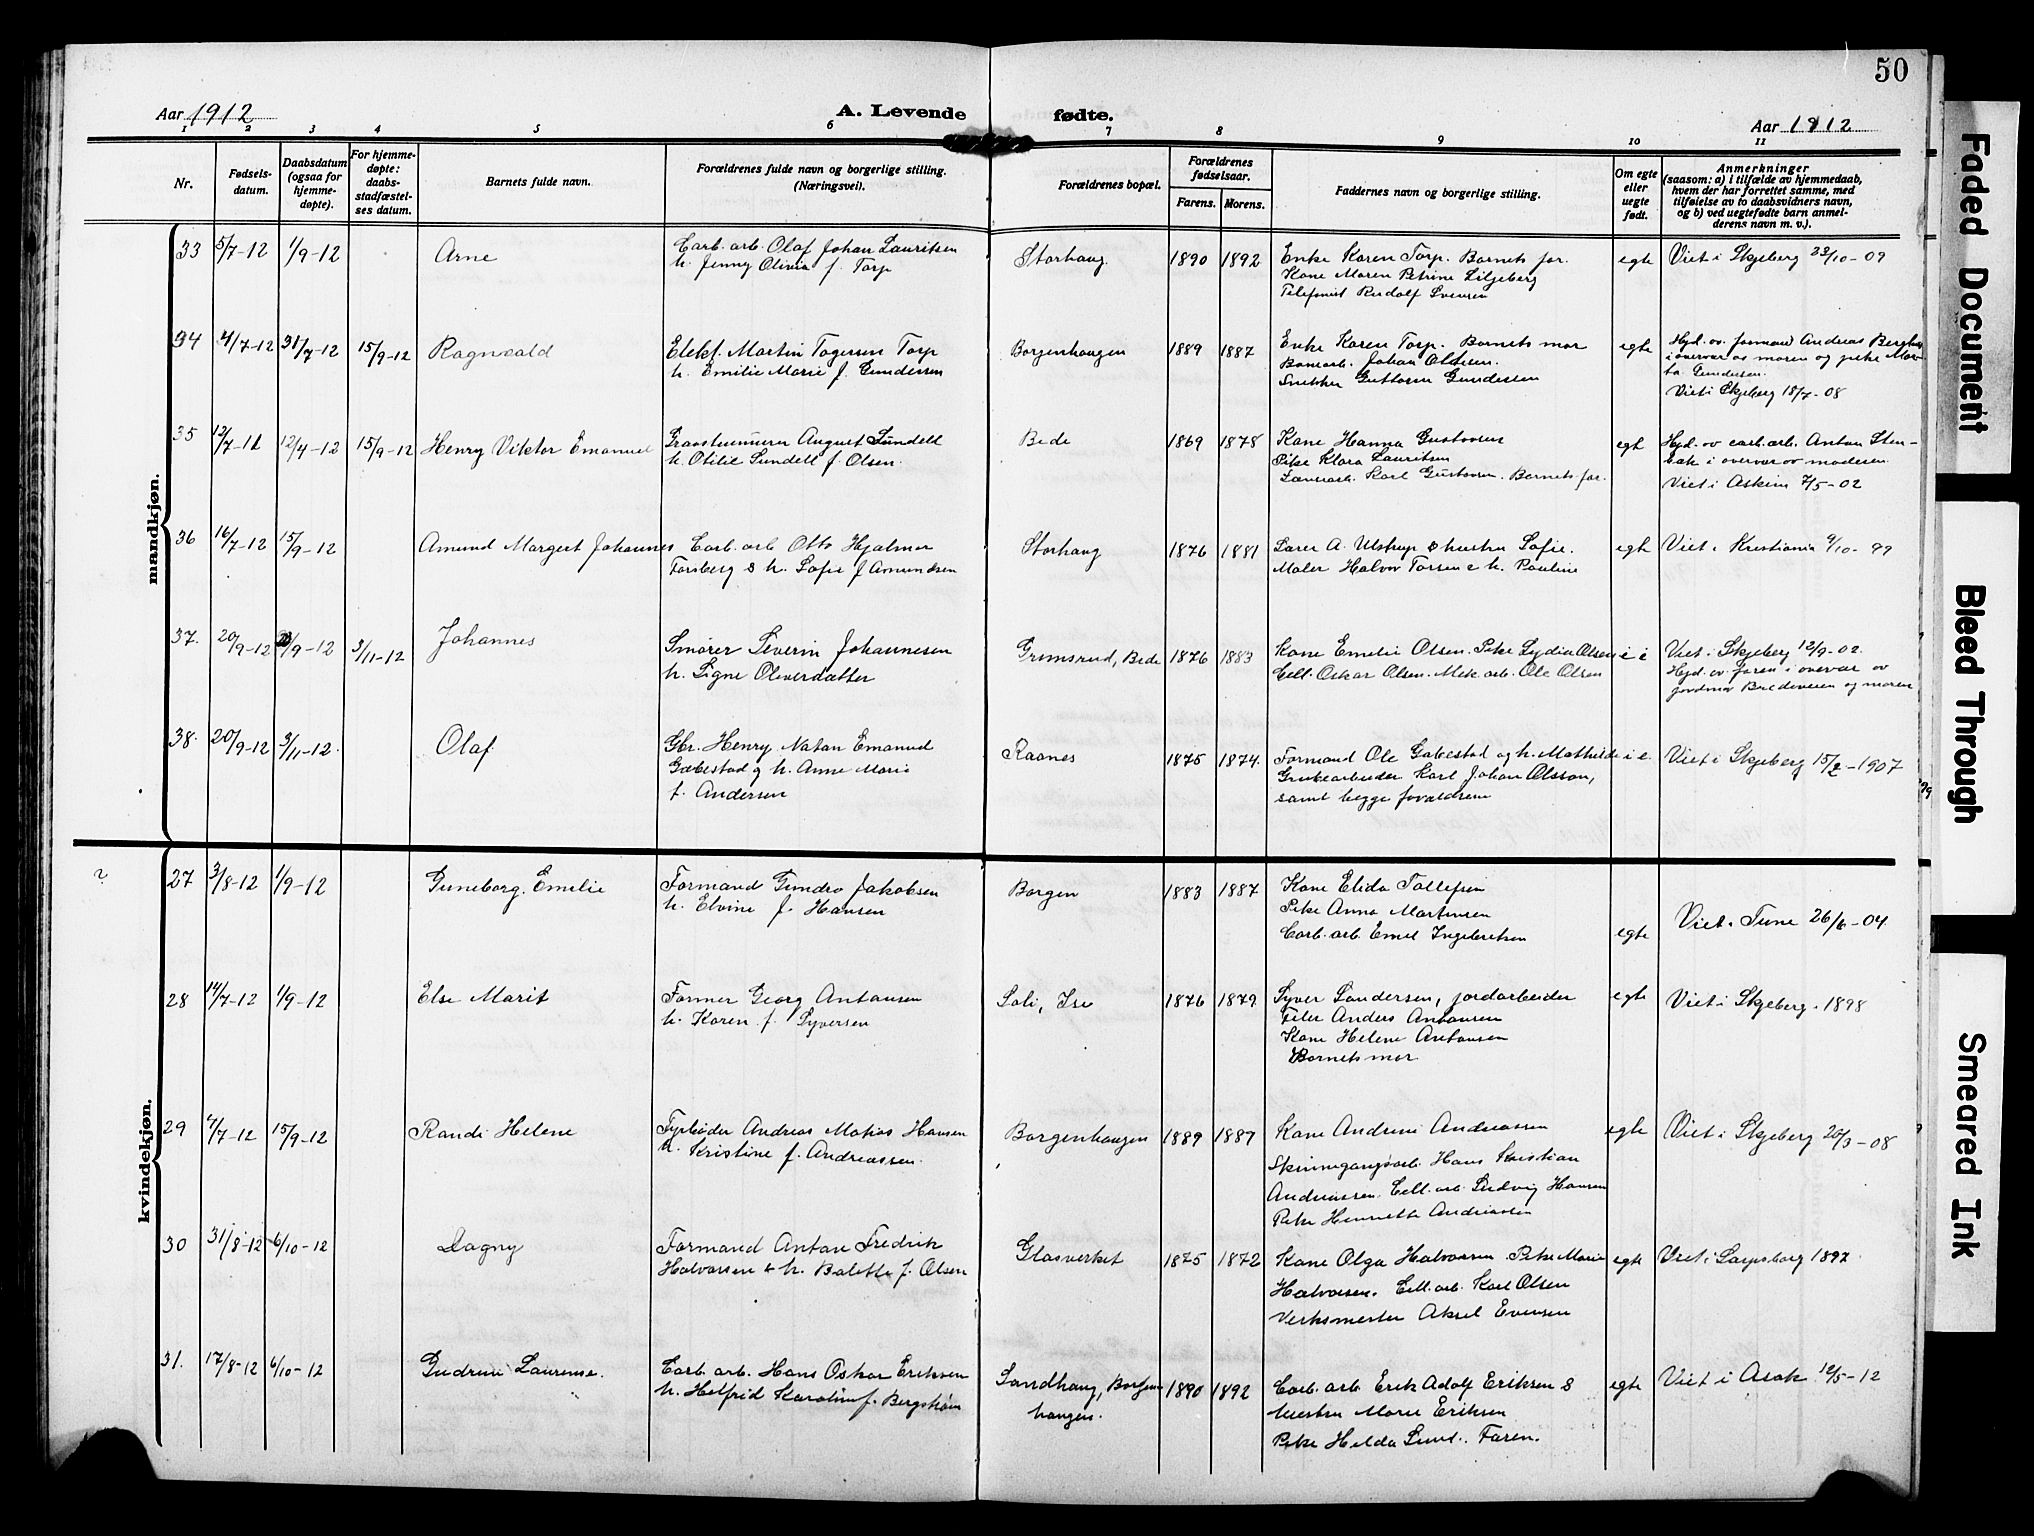 50
Aar 1912
A. Levende fødte.
Aar 1912
1 2 3 4 5 6 7 8 9 10 11
Nr.
Fødsels-
datum.
Daabsdatum
(ogsaa for
hjemme-
døpte).
For hjemme-
døpte:
daabs-
stadfæstel-
ses datum.
Barnets fulde navn.
Forældrenes fulde navn og borgerlige stilling.
(Næringsvei).
Forældrenes bopæl.
Forældrenes
fødselsaar.
Farens. Morens.
Faddernes navn og borgerlige stilling.
Om egte
eller
uegte
født.
Anmerkninger
(saasom: a) i tilfælde av hjemmedaab,
hvem der har forrettet samme, med
tilføielse av to daabsvidners navn,
og b) ved uegtefødte barn anmel-
derens navn m. v.).
mandkjøn.
33 5/7-12 1/9-12 Arne
Carb. arb. Olaf Johan Lauritsen
h. Jenny Olivia f. Torp
Storhaug 1890 1892
Enke Karen Torp. Barnets far.
Kone Maren Petrine Liljeberg
Telefonist Rudolf Svensen
egte
Viet i Skjeberg 23/10-09
34 4/7-12 31/7-12 15/9-12 Ragnvald
Elekt. Martin Togersen Torp
h. Emilie Marie f. Gundersen
Borgenhaugen 1889 1887
Enke Karen Torp. Barnets mor
Johan Olsen.
Snekker Gustav Gundersen
egte
Hjd. ov. formand Andreas
i overvær av moren og pike Mar-
ta Gundersen.
Viet i Skjeberg 18/7-08
35 12/7-11 12/4-12 15/9-12 Henry Viktor Emanuel
Graastensmurer August Sundell
h. Otilie Sundell f. Olsen.
Bede 1869 1878
Kone Hanna Gustavsen
Pike Klara Lauritsen
Karl Gustavsen. Barnets far.
egte
Hjd. ov carb. arb. Anton Sten-
bæk i overvær ov moderen.
Viet i Askim 7/5-02
36 16/7-12 15/9-12 Amund Margert Johannes
Carb. arb Otto Hjalmar
Forsberg & h. Sofie f Amundsen
Storhaug 1876 1881
Lærer A. Ulstrup & hustru Sofie.
Maler Halvor Torsen & h. Pauline
egte
Viet i Kristiania 9/10-99
37. 20/9-12 /9-12 3/11-12 Johannes
Smører Severin Johannesen
h. Signe Oliversdatter
Grimsrud, Bede 1876 1883
Kone Emelie Olsen. Pike Lydia Olsen
Cell. Oskar Olsen. Mek. arb. Ole Olsen
i e
Viet i Skjeberg 12/9-02.
Hjd. ov. faren i overvær ov
jordmor Bredevesen og moren
38. 20/9-12 3/11-12 Olaf
Gbr. Henry Natan Emanuel
Gabestad g h. Anne Marie
f. Andersen
Raanes 1875 1874.
Formand Ole Gabestad og h. Mathilde
Grubearbeider Karl Johan Olsson,
samt begge forældrene
i e.
Viet i Skjeberg 15/2-1907
kvindekjøn.
27 3/8-12 1/9-12 Guneborg Emelie
Formand Gundro Jakobsen
h. Elvine f. Hansen
Borgen 1883 1887
Kone Elida Tollefsen
Pike Anna Martinsen
Carb. arb. Emil Ingebretsen
egte
Viet i Tune 26/6-04
28 14/7-12 1/9-12 Else Marit
Former Georg Antonsen
h. Karen f. Syversen
Soli, Ise 1876 1879
Syver Sandersen, jordarbeider
Filer Anders Antonsen
Kone Helene Antonsen
Barnets mor
egte
Viet i Skjeberg. 1898
29 4/7-12 15/9-12 Randi Helene
Fyrbøder Andreas Matias Hansen
h. Kristine f. Andreassen.
Borgenhaugen 1889 1887
Kone Andrine Andreassen
Skinnegangsarb. Hans Kristian
Andreassen. Cell. arb. Ludvig Hansen
Pike Henriette Andreassen
egte
Viet i Skjeberg 20/3-08
30 31/8-12 6/10-12 Dagny
Formand Anton Fredrik
Halvorsen & h. Balette f. Olsen
Glasverket 1875 1872
Kone Olga Halvorsen Pike Marie
Halvorsen. Cell. arb. Karl Olsen
Verksmester Aksel Evensen
egte
Viet i Sarpsborg 1897.
31. 17/8-12 6/10-12 Gudrun Laurense.
Carb. arb. Hans Oskar Eriksen
h. Helfrid Karoline f. Bergstrøm
Sandhaug, Borgen
haugen.
1890 1892
Carb. arb. Erik Adolf Eriksen &
hustru Marie Eriksen
Pike Helda Lund. Faren.
egte
Viet i Asak 12/5-12
Faded Document
Bleed Through
Smeared Ink